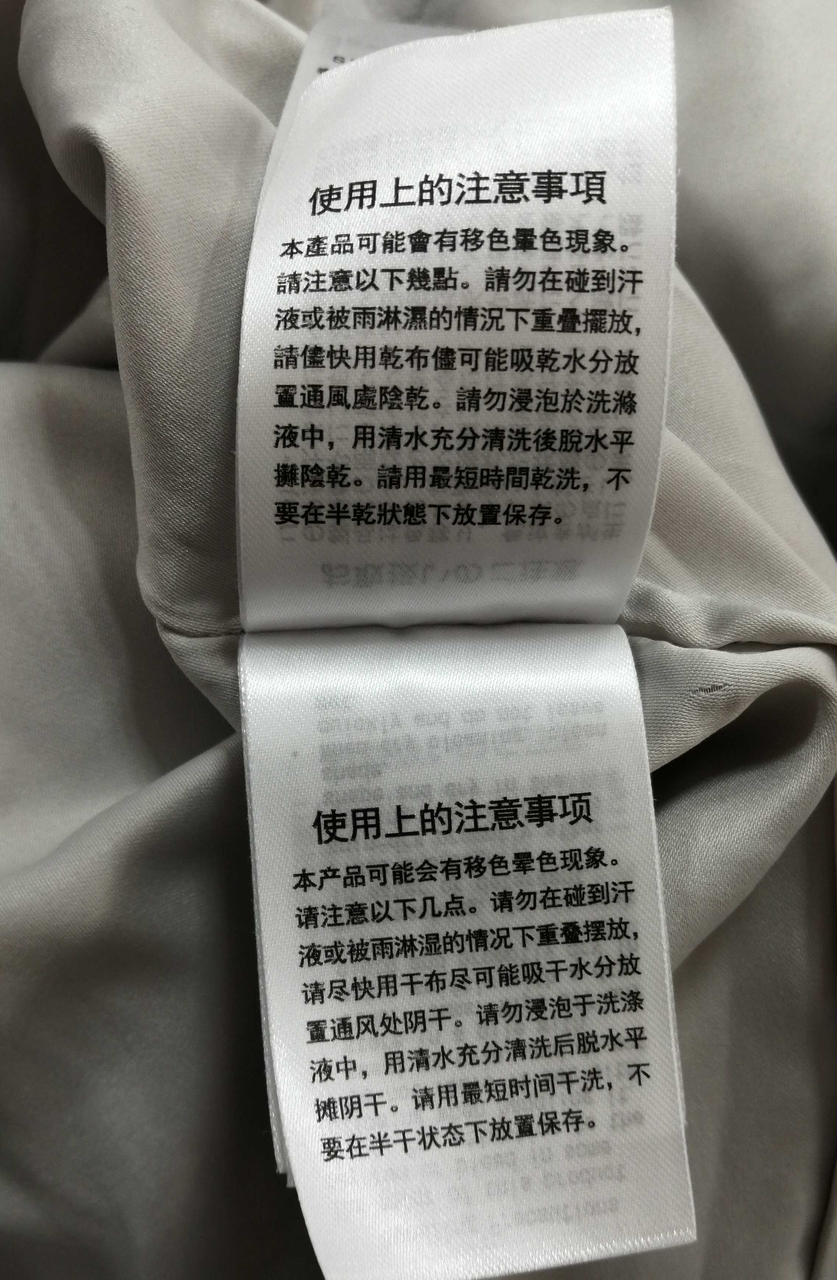 使用上的注意事項
本產品可能會有移色暈色現象。
請注意以下幾點。請勿在碰到汗
液或被雨淋濕的情況下重疊擺放，
請儘快用乾布儘可能吸乾水分放
置通風處陰乾。請勿浸泡於洗滌
液中，用清水充分清洗後脫水平
攤陰乾。請用最短時間乾洗，不
要在半乾狀態下放置保存。
使用上的注意事项
本产品可能会有移色晕色现象。
请注意以下几点。请勿在碰到汗
液或被雨淋湿的情况下重叠摆放，
请尽快用干布尽可能吸干水分放
置通风处阴干。请勿浸泡于洗涤
液中，用清水充分清洗后脱水平
摊阴干。请用最短时间干洗，不
要在半干状态下放置保存。